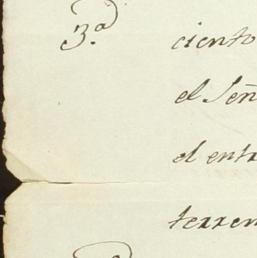 3.ª
ciento
el Señ
el entr
terren